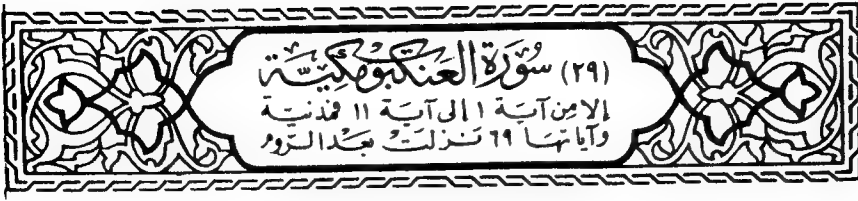 (٢٩) سُورَة العَنكبوت مكيَّة
إلا مِن آية ١ إلى آية ١١ فمدنيَّة
وآياتها ٦٩ نزلت بعد الروم